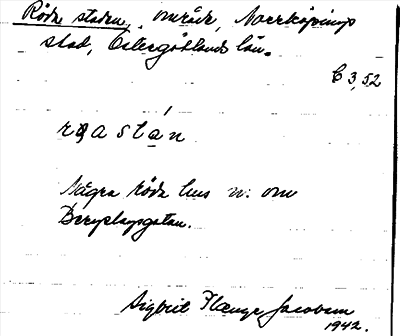 Röda staden, område, Norrköpings
stad, Östergötlands län.
C 3,52
Några röda hus n. om
Bergslagsgatan.
Sigbrit Plænge Jacobson
1942.